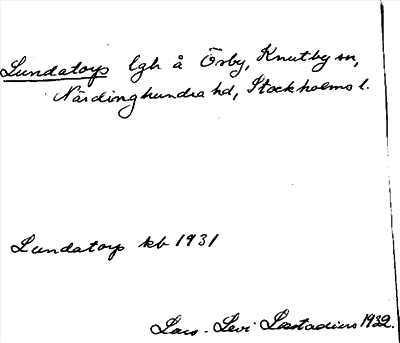 Lundatorp lgh å Ösby, Knutby sn,
Närdinghundra hd, Stockholms l.
Lundatorp kb 1931
Lars-Levi Læstadius 1932.